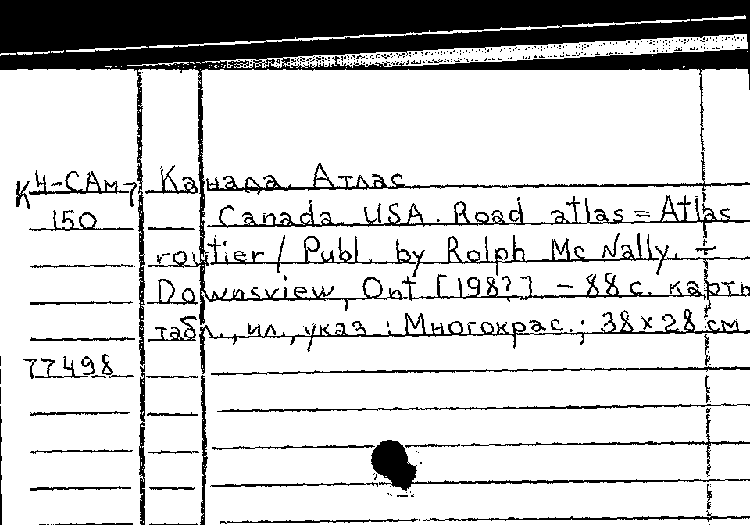 К4-САм7 Канада. Атлас
150 Canada. USA. Road atlas = Atlas
routier / Publ. by Rolph Mc Nally. –
Downsview, Ont [198?] – 88 с. карты
табл., ил., указ : Многокрас.; 38 х 28 см
77498